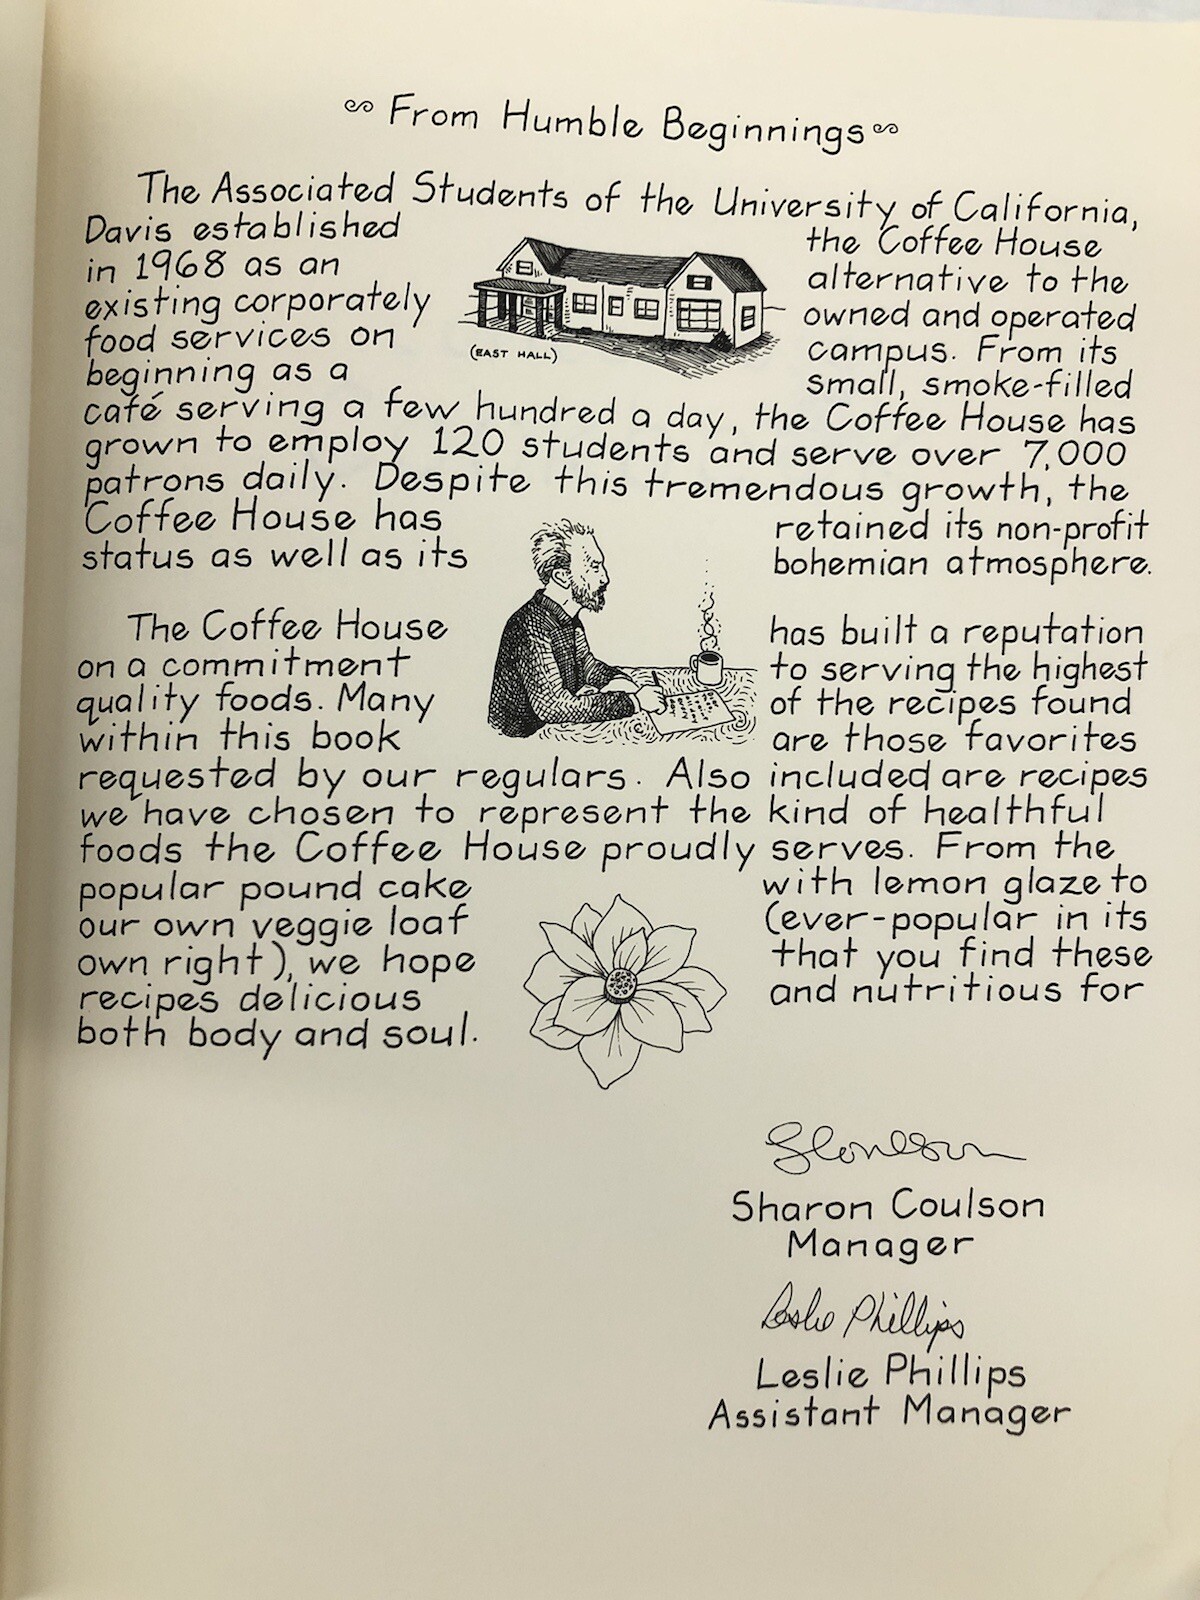 From Humble Beginnings
The Associated Students of the University of California,
Davis established the Coffee House
in 1968 as an alternative to the
existing corporately owned and operated
(EAST HALL)
food services on campus. From its
beginning as a small, smoke-filled
café serving a few hundred a day, the Coffee House has
grown to employ 120 students and serve over 7,000
patrons daily. Despite this tremendous growth, the
Coffee House has retained its non-profit
status as well as its bohemian atmosphere.
The Coffee House has built a reputation
on a commitment to serving the highest
quality foods. Many of the recipes found
within this book are those favorites
requested by our regulars. Also included are recipes
we have chosen to represent the kind of healthful
foods the Coffee House proudly serves. From the
popular pound cake with lemon glaze to
our own veggie loaf (ever-popular in its
own right), we hope that you find these
recipes delicious and nutritious for
both body and soul.
SCoulson
Sharon Coulson
Manager
Leslie Phillips
Leslie Phillips
Assistant Manager